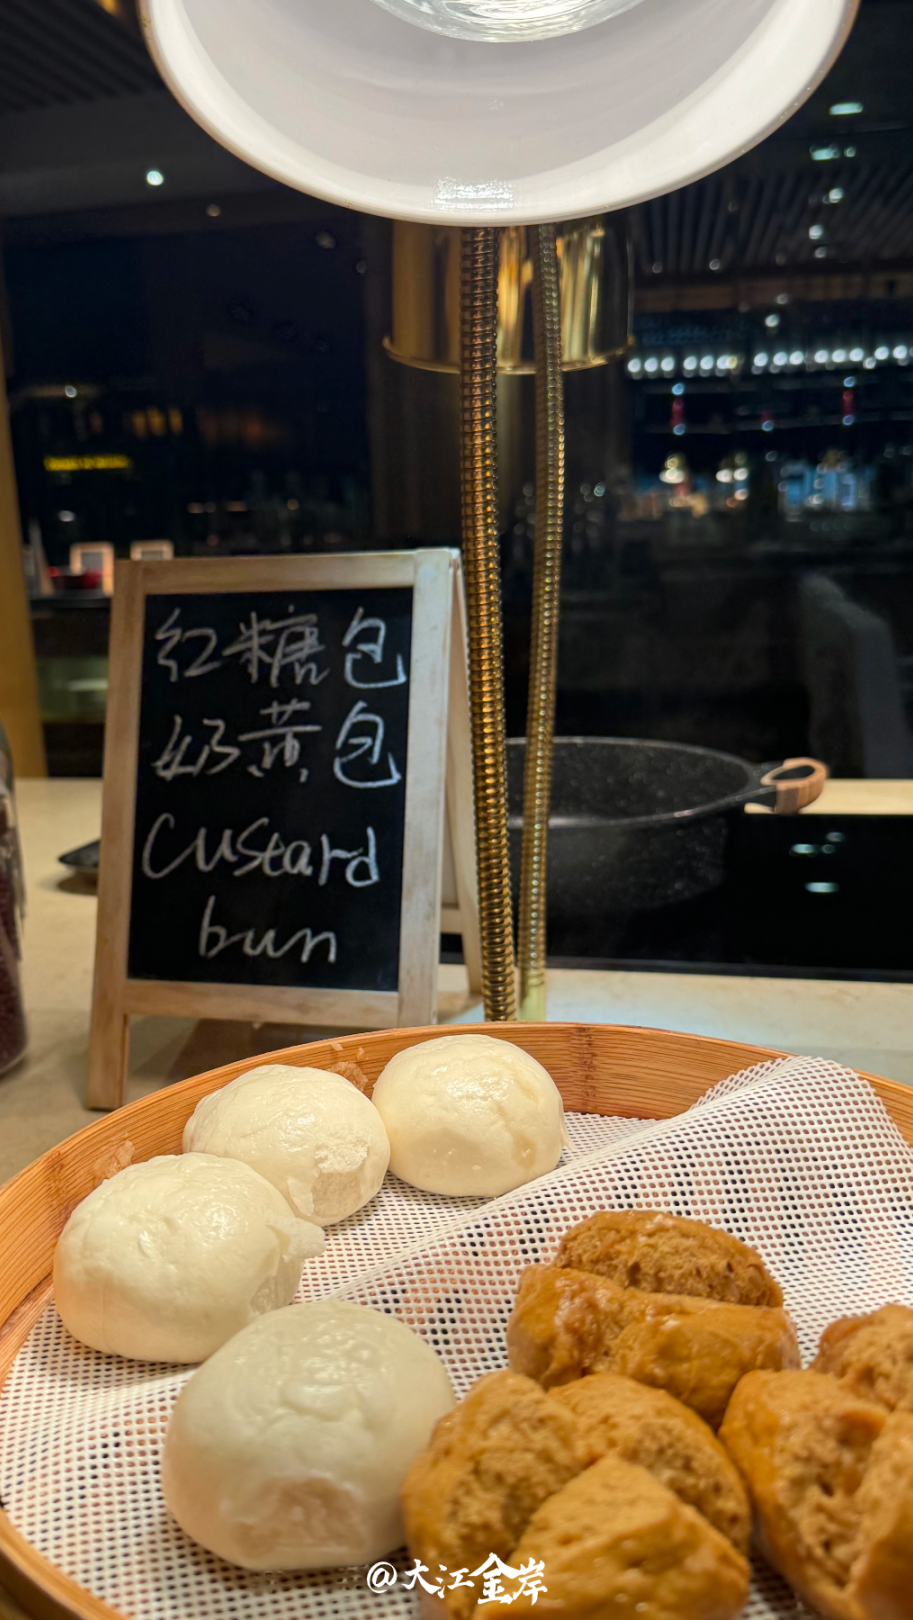 红糖包
奶黄包
Custard
bun
@大江金岸